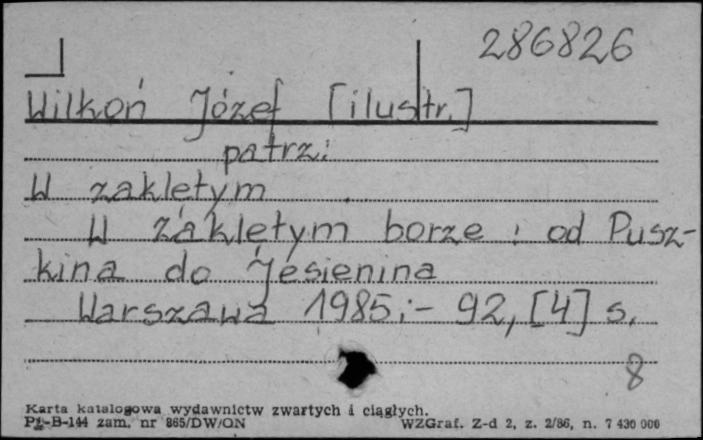 286826
Wilkoń Józef [ilustr.]
patrz:
W zaklętym
W zaklętym borze : od Pusz-
kina do Jesienina
Warszawa 1985.- 92, [4] s.
8
Karta katalogowa wydawnictw zwartych i ciągłych.
Pt-B-144 zam. nr 865/DW/ON WZGraf. Z-d 2, z. 2/86, n. 7 430 000